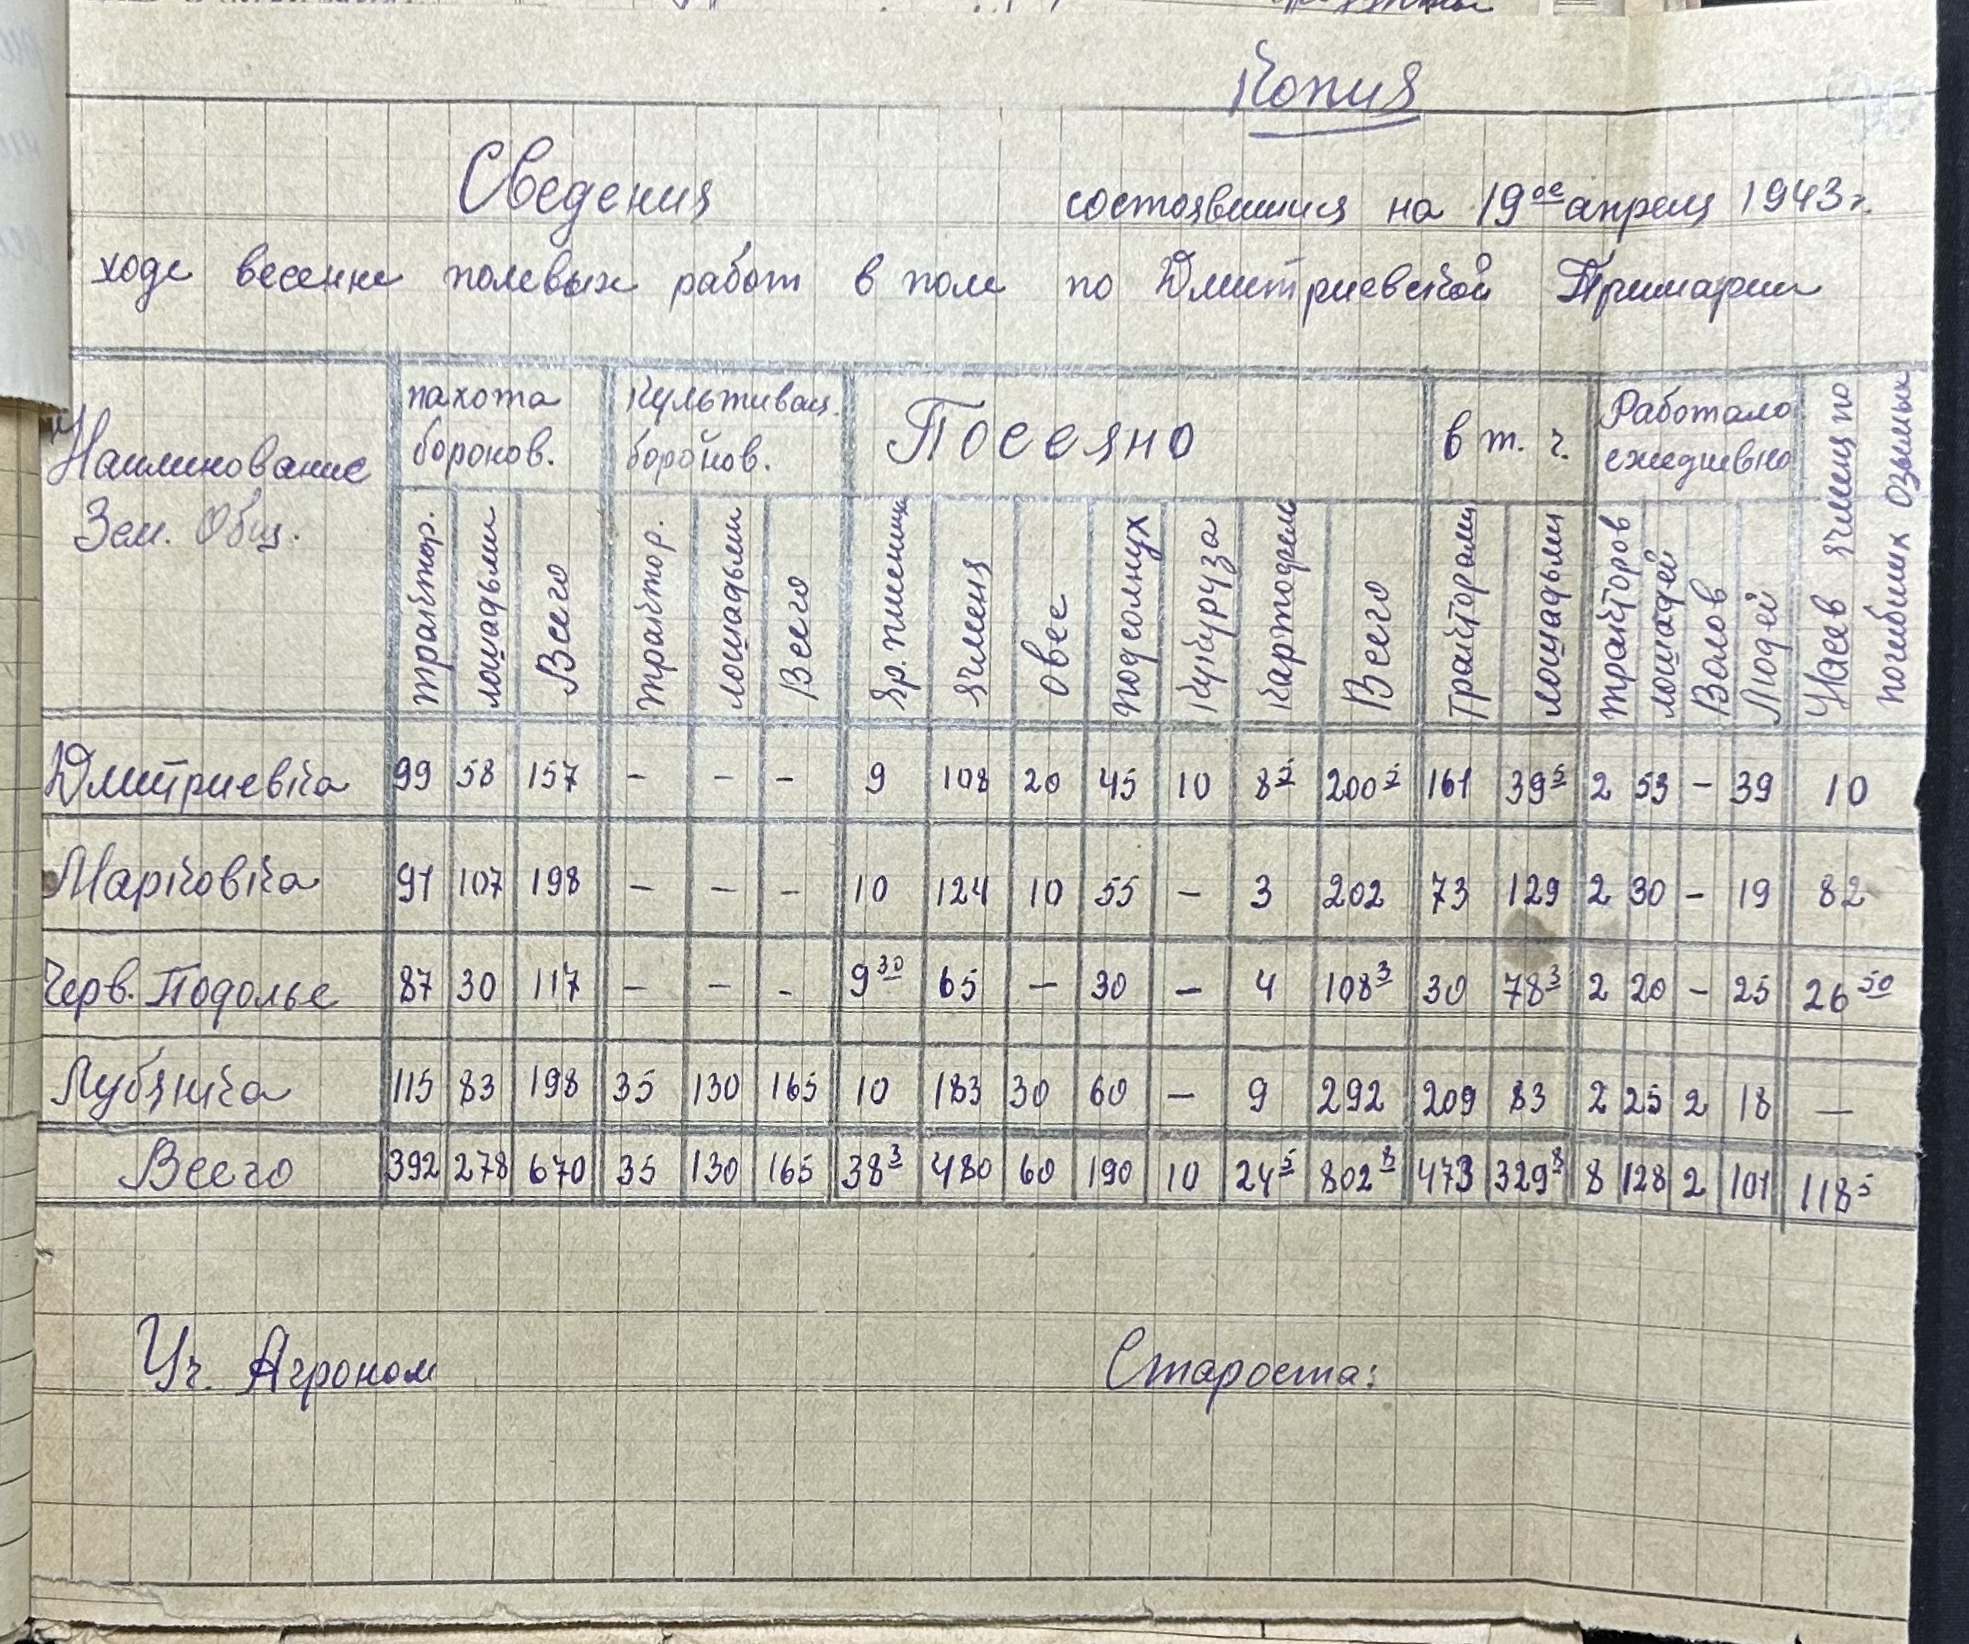 Копия
Сведения состоявшиися на 19ое апреля 1943 г.
ходе весенне полевых работ в поле по Дмитриевской Примарии
Наилинование Зем. Общ. | пахота боронов. | Культивац. боронов. | Посеяно | в т. ч. | Работало ежедневно | Насев ячменя по погибших озымых
трактор. | лошадьми | Всего | трактор. | лошадьми | Всего | Яр. пшеница | ячменя | овес | подсолнух | Кукуруза | Картофель | Всего | Тракторами | лошадьми | тракторов | лошадей | Волов | Людей
Дмитриевка | 99 | 58 | 157 | - | - | - | 9 | 108 | 20 | 45 | 10 | 8 5 | 200 5 | 161 | 39 5 | 2 | 53 | - | 39 | 10
Марковка | 91 | 107 | 198 | - | - | - | 10 | 124 | 10 | 55 | - | 3 | 202 | 73 | 129 | 2 | 30 | - | 19 | 82
Черв. Подолье | 87 | 30 | 117 | - | - | - | 9 30 | 65 | - | 30 | - | 4 | 108 3 | 30 | 78 3 | 2 | 20 | - | 25 | 26 50
Лубянка | 115 | 83 | 198 | 35 | 130 | 165 | 10 | 183 | 30 | 60 | - | 9 | 292 | 209 | 83 | 2 | 25 | 2 | 18 | —
Всего | 392 | 278 | 670 | 35 | 130 | 165 | 38 3 | 480 | 60 | 190 | 10 | 24 5 | 802 8 | 473 | 329 8 | 8 | 128 | 2 | 101 | 118 5
Уч. Агроном Староста: